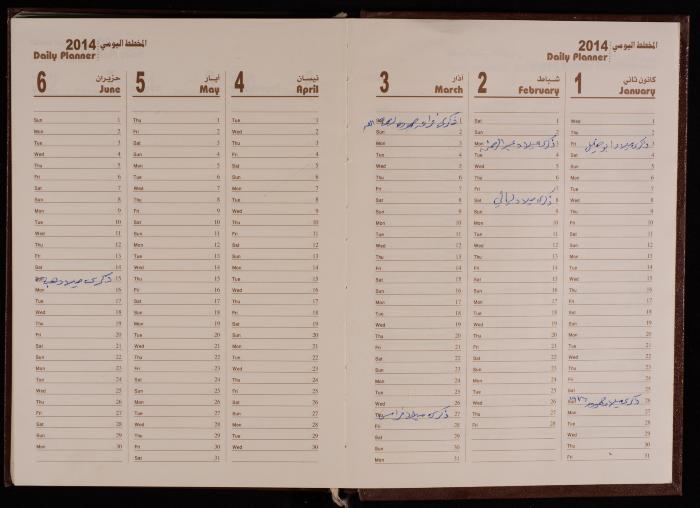 المخطط اليومي 2014
Daily Planner
1 كانون ثاني
January
Wed 1
Thu 2
Fri ذكرى ميلاد ابو خليل 3
Sat 4
Sun 5
Mon 6
Tue 7
Wed 8
Thu 9
Fri 10
Sat 11
Sun 12
Mon 13
Tue 14
Wed 15
Thu 16
Fri 17
Sat 18
Sun 19
Mon 20
Tue 21
Wed 22
Thu 23
Fri 24
Sat 25
Sun ذكرى ميلاد 26
Mon 27
Tue 28
Wed 29
Thu 30
Fri 31
2 شباط
February
Sat 1
Sun 2
Mon ذكرى ميلاد عبد الرحمن 3
Tue 4
Wed 5
Thu 6
Fri 7
Sat ذكرى ميلاد 8
Sun 9
Mon 10
Tue 11
Wed 12
Thu 13
Fri 14
Sat 15
Sun 16
Mon 17
Tue 18
Wed 19
Thu 20
Fri 21
Sat 22
Sun 23
Mon 24
Tue 25
Wed 26
Thu 27
Fri 28
3 آذار
March
Sat ذكرى 1
Sun 2
Mon 3
Tue 4
Wed 5
Thu 6
Fri 7
Sat 8
Sun 9
Mon 10
Tue 11
Wed 12
Thu 13
Fri 14
Sat 15
Sun 16
Mon 17
Tue 18
Wed 19
Thu 20
Fri 21
Sat 22
Sun 23
Mon 24
Tue 25
Wed 26
Thu ذكرى ميلاد فراس 27
Fri 28
Sat 29
Sun 30
Mon 31
المخطط اليومي 2014
Daily Planner
4 نيسان
April
Tue 1
Wed 2
Thu 3
Fri 4
Sat 5
Sun 6
Mon 7
Tue 8
Wed 9
Thu 10
Fri 11
Sat 12
Sun 13
Mon 14
Tue 15
Wed 16
Thu 17
Fri 18
Sat 19
Sun 20
Mon 21
Tue 22
Wed 23
Thu 24
Fri 25
Sat 26
Sun 27
Mon 28
Tue 29
Wed 30
5 أيار
May
Thu 1
Fri 2
Sat 3
Sun 4
Mon 5
Tue 6
Wed 7
Thu 8
Fri 9
Sat 10
Sun 11
Mon 12
Tue 13
Wed 14
Thu 15
Fri 16
Sat 17
Sun 18
Mon 19
Tue 20
Wed 21
Thu 22
Fri 23
Sat 24
Sun 25
Mon 26
Tue 27
Wed 28
Thu 29
Fri 30
Sat 31
6 حزيران
June
Sun 1
Mon 2
Tue 3
Wed 4
Thu 5
Fri 6
Sat 7
Sun 8
Mon 9
Tue 10
Wed 11
Thu 12
Fri 13
Sat 14
Sun ذكرى ميلاد هبة 15
Mon 16
Tue 17
Wed 18
Thu 19
Fri 20
Sat 21
Sun 22
Mon 23
Tue 24
Wed 25
Thu 26
Fri 27
Sat 28
Sun 29
Mon 30